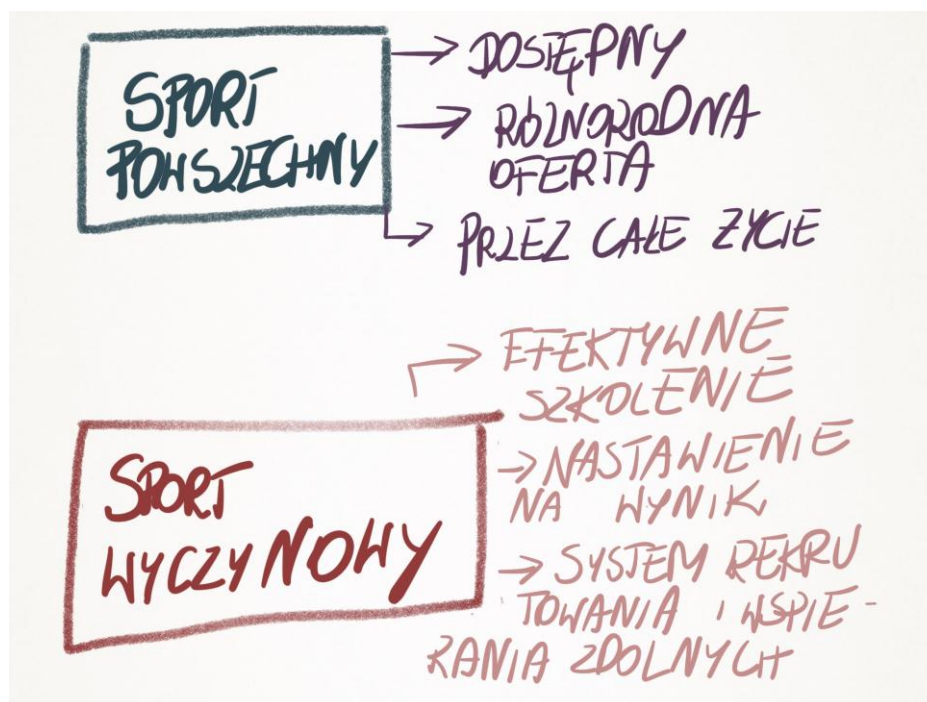 SPORT
POWSZECHNY
→ DOSTĘPNY
→ RÓŻNORODNA
OFERTA
→ PRZEZ CAŁE ŻYCIE
SPORT
WYCZYNOWY
→ EFEKTYWNE
SZKOLENIE
→ NASTAWIENIE
NA WYNIK
→ SYSTEM REKRU
TOWANIA I WSPIE-
RANIA ZDOLNYCH